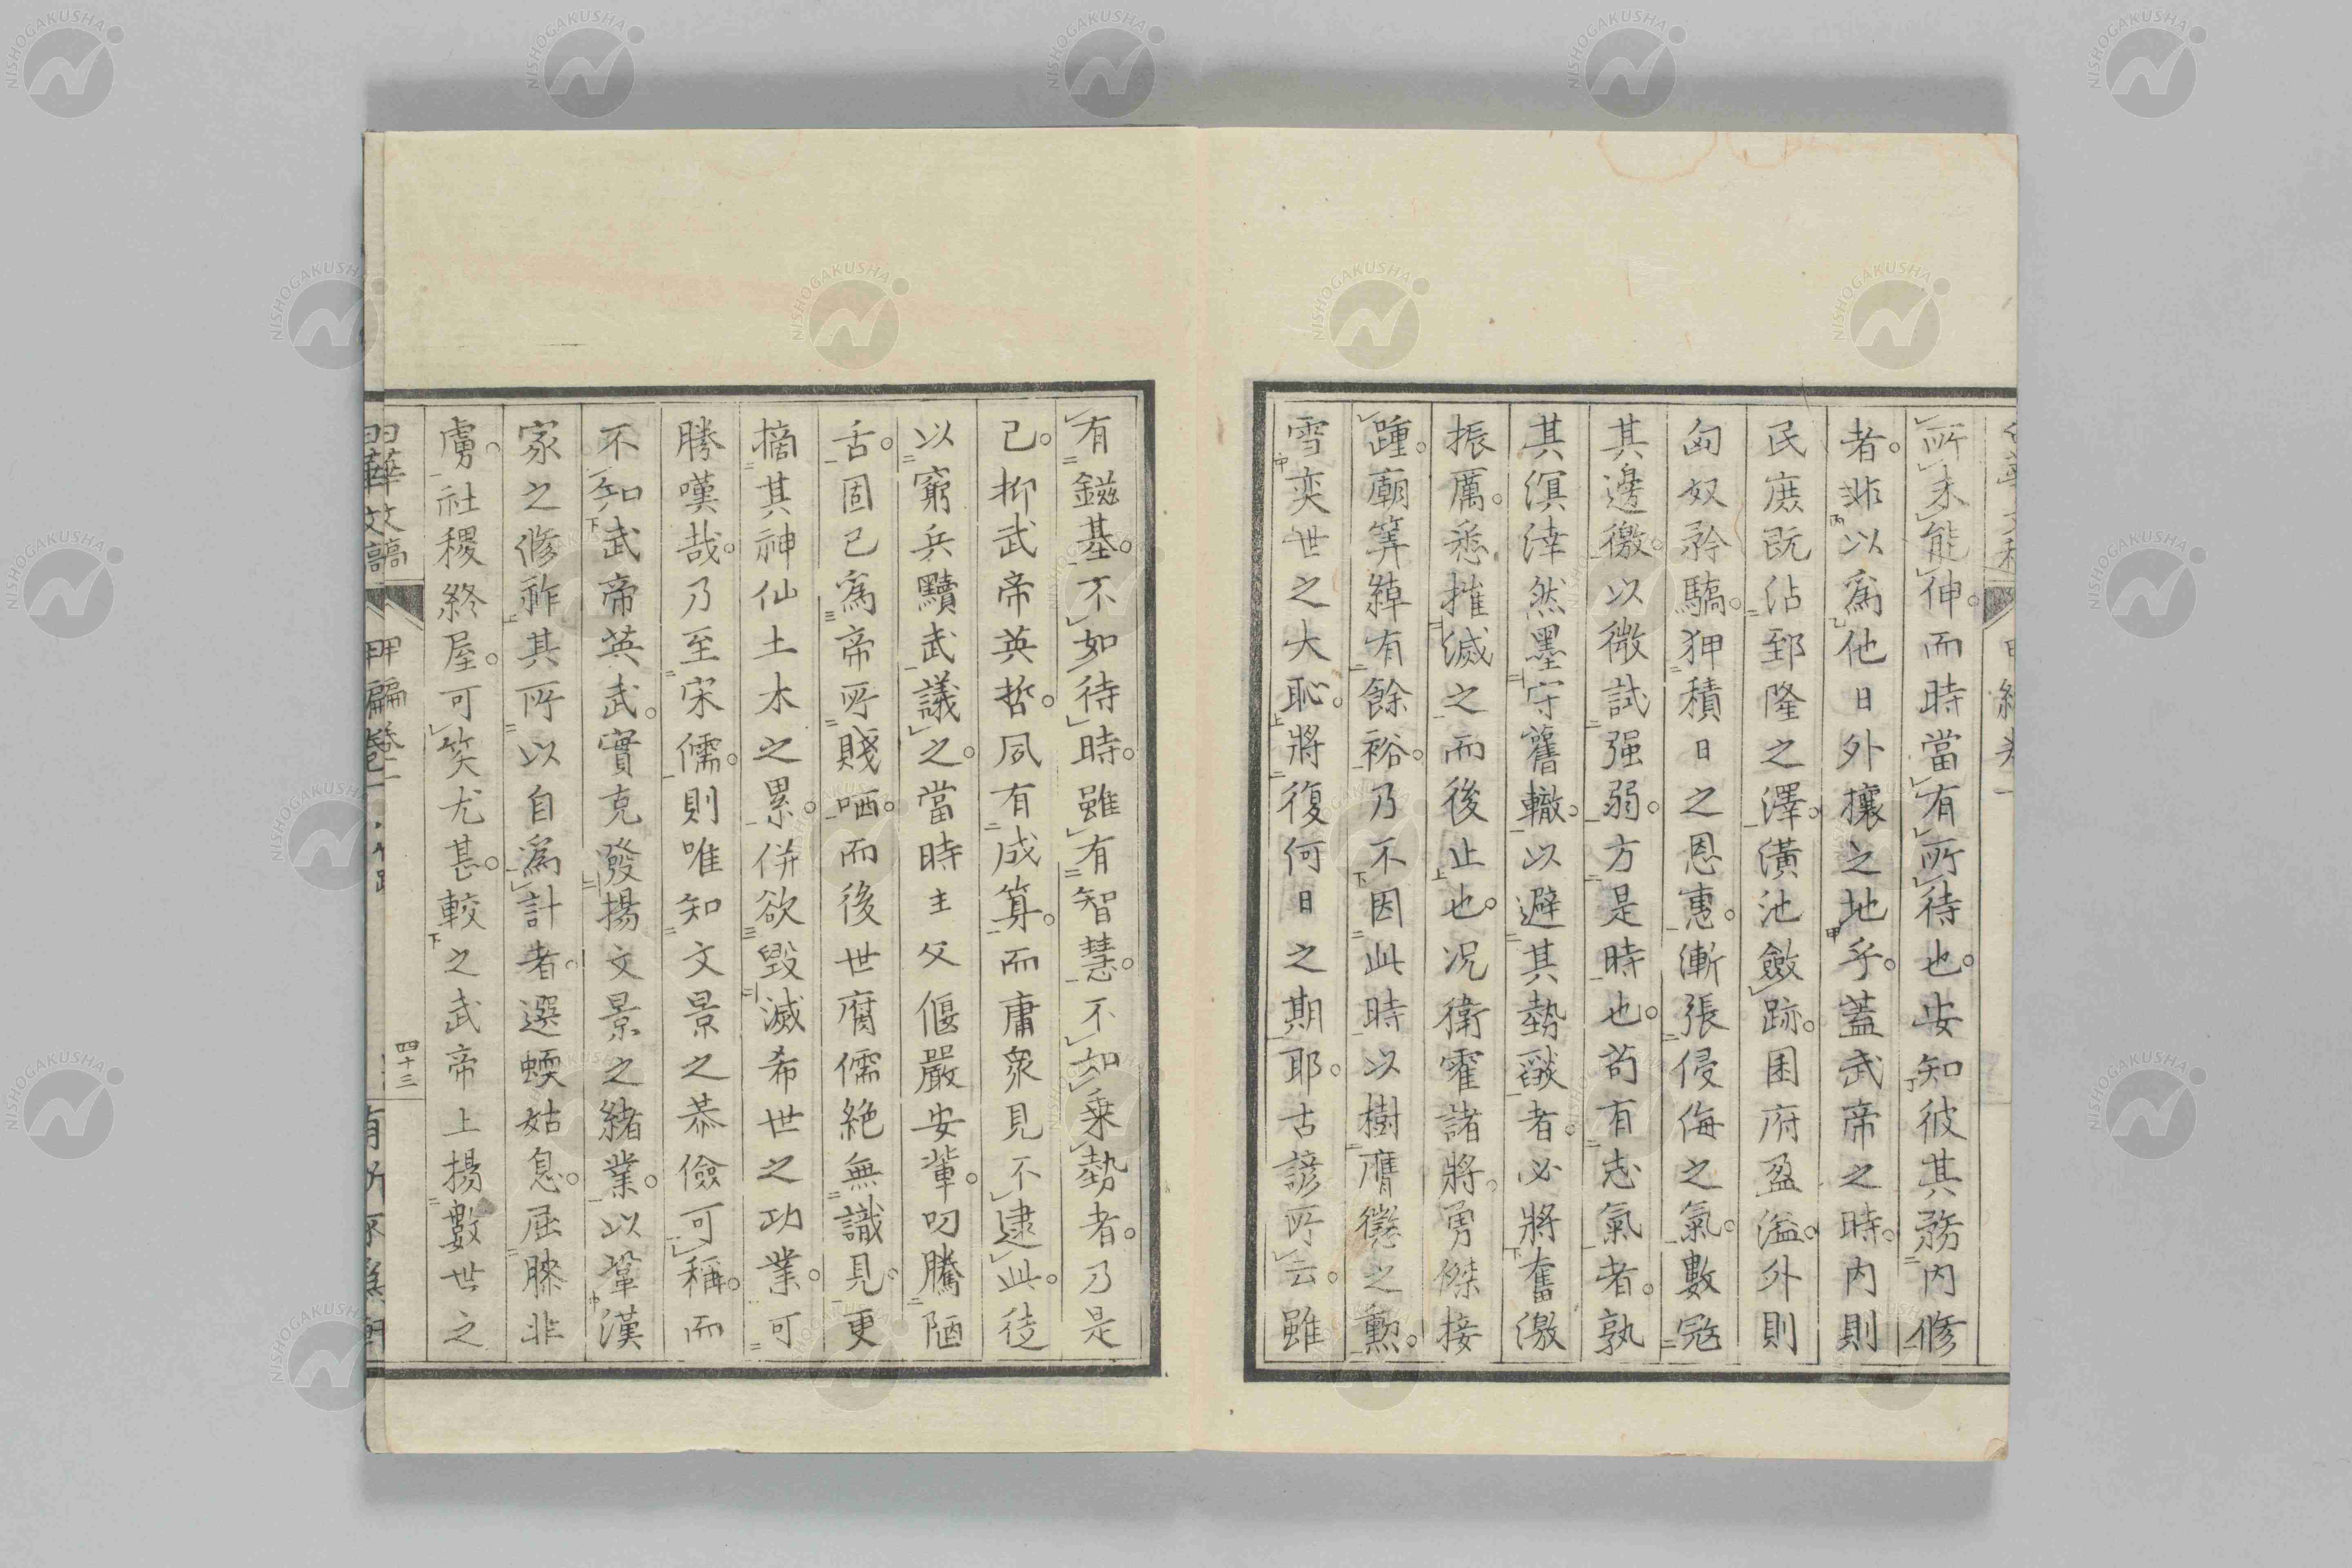 所未能伸。而時當有所待也。安知彼其務内修
者。非以爲他日外攘之地乎。蓋武帝之時。内則
民庶既沾郅隆之澤。潢池斂跡。囷府盈溢。外則
匈奴矜驕。狎積日之恩惠。漸張侵侮之氣。數寇
其邊徼。以微試强弱。方是時也。苟有志氣者。孰
其溟涬然墨守舊轍。以避其勢燄者。必將奮激
振厲。悉摧滅之而後止也。况衛霍諸將。勇傑接
踵。廟筭綽有餘裕。乃不因此時以樹膺懲之勲。
雪奕世之大恥。將復何日之期耶。古諺所云。雖
有鎡基。不如待時。雖有智慧。不如乗勢者。乃是
已。抑武帝英哲。夙有成算。而庸衆見不逮此。徒
以窮兵黷武議之。當時主父偃嚴安輩。叨騰陋
舌。固已爲帝所賤哂。而後世腐儒絶無識見。更
摘其神仙土木之累。併欲毀滅希世之功業。可
勝嘆哉。乃至宋儒。則唯知文景之恭儉可稱。而
不知武帝英武。實克發揚文景之緒業。以鞏漢
家之修祚。其所以自爲計者。選蝡姑息。屈膝非
虜。社稷終屋。可笑尤甚。較之武帝上揚數世之
文稿
甲編卷二
四十三
NISHOGAKUSHA